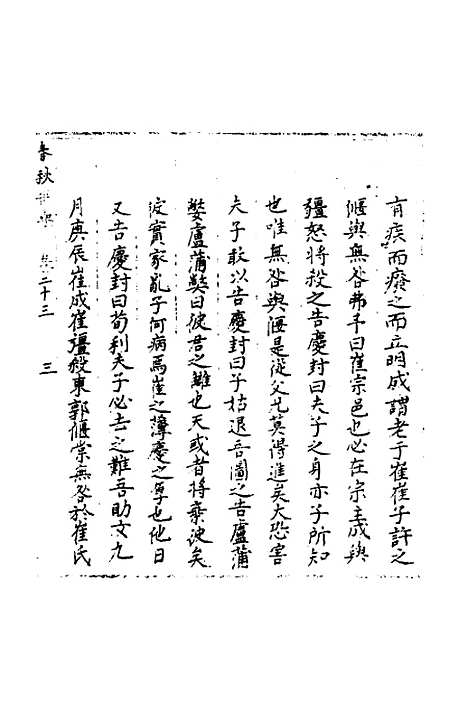 有疾而廢之而立明成謂老于崔崔子許之
偃與無咎弗予曰崔宗邑也必在宗主成與
彊怒將殺之告慶封曰夫子之身亦子所知
也唯無咎與偃是從父兄莫得進矣大恐害
夫子敢以告慶封曰子姑退吾圖之告盧蒲
嫳盧蒲嫳曰彼君之讎也天或者將棄彼矣
彼實家亂子何病焉崔之薄慶之厚也他日
又告慶封曰苟利夫子必去之難吾助女九
月庚辰崔成崔彊殺東郭偃棠無咎於崔氏
春秋 卷二十三 三